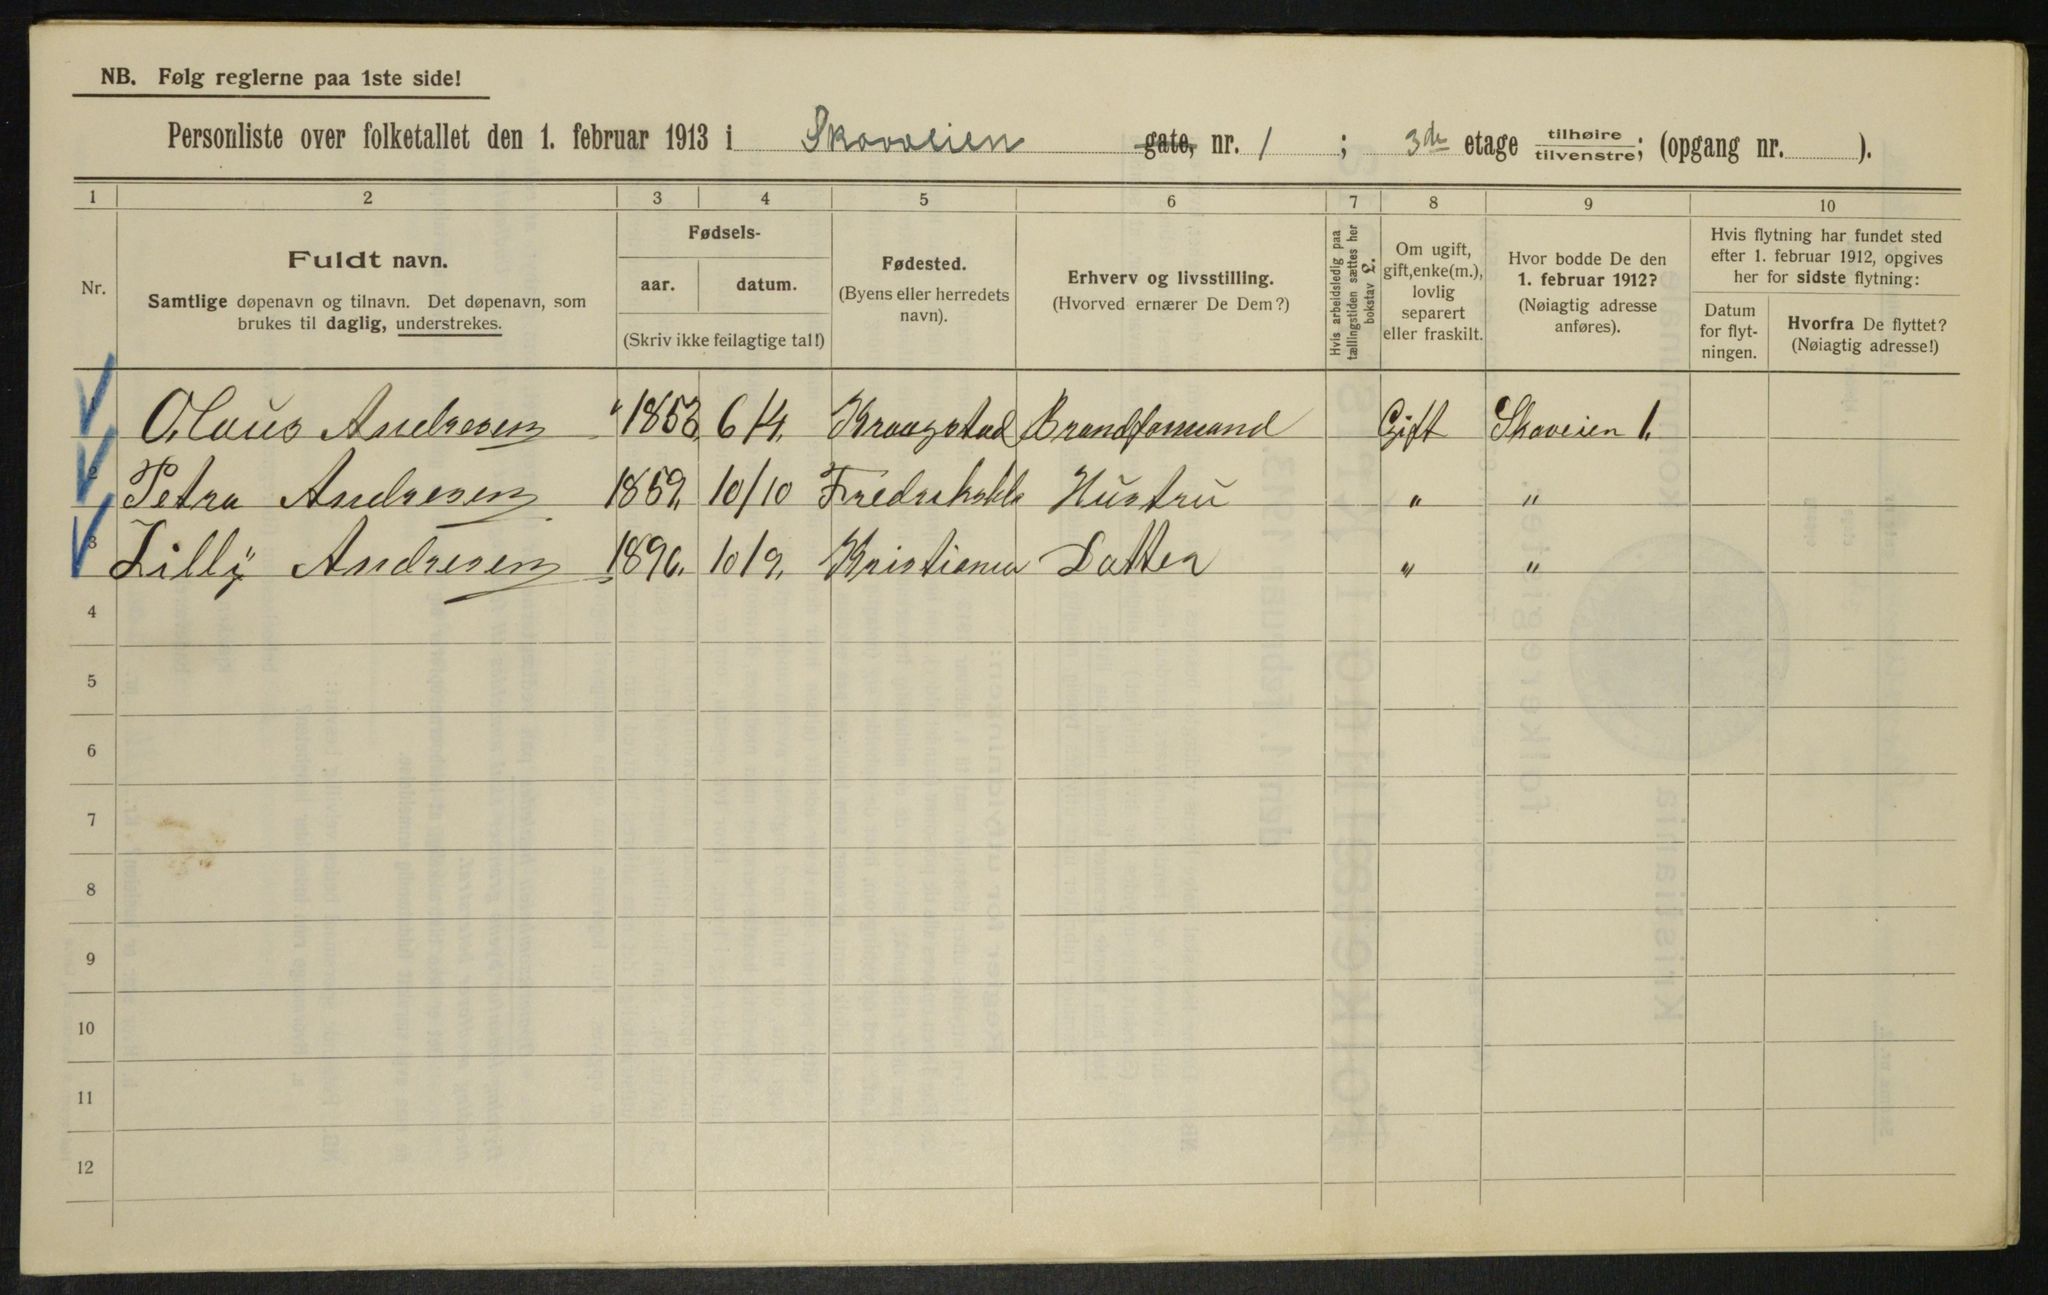 NB. Følg reglerne paa 1ste side!
Personliste over folketallet den 1. februar 1913 i Skovveien gate, nr. 1 ; 3de etage tilhøire tilvenstre; (opgang nr. ).
1 2 3 4 5 6 7 8 9 10
Nr.
Fuldt navn.
Samtlige døpenavn og tilnavn. Det døpenavn, som
brukes til daglig, understrekes.
Fødsels-
aar. datum.
(Skriv ikke feilagtige tal!)
Fødested.
(Byens eller herredets
navn).
Erhverv og livsstilling.
(Hvorved ernærer De Dem?)
Hvis arbeidsledig paa
tællingstiden sættes her
bokstav L.
Om ugift,
gift, enke(m.),
lovlig
separert
eller fraskilt.
Hvor bodde De den
1. februar 1912?
(Nøiagtig adresse
anføres).
Hvis flytning har fundet sted
efter 1. februar 1912, opgives
her for sidste flytning:
Datum
for flyt-
ningen.
Hvorfra De flyttet?
(Nøiagtig adresse!)
1 Olaus Andresen 1853 6/4. Kraagstad Brandformand Gift Skoveien 1.
2 Petra Andresen 1859. 10/10 Fredrikshald Hustru " "
3 Lilly Andresen 1896. 10/9. Kristiania Datter " "
4
5
6
7
8
9
10
11
12